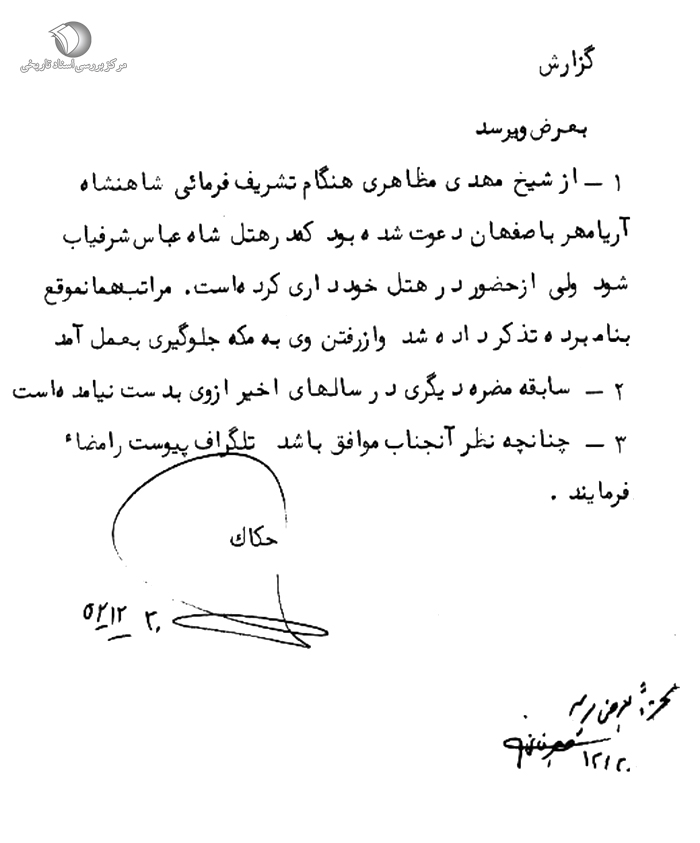 مرکز بررسی اسناد تاریخی
گزارش
بعرض میرسد
۱ – از شیخ مهدی مظاهری هنگام تشریف فرمائی شاهنشاه
آریامهر باصفهان دعوت شده بود که در هتل شاه عباس شرفیاب
شود ولی از حضور در هتل خودداری کرده است. مراتب همانموقع
بنامبرده تذکر داده شد و از رفتن وی به مکه جلوگیری بعمل آمد
۲ – سابقه مضره دیگری در سالهای اخیر از وی بدست نیامده است
۳ – چنانچه نظر آنجناب موافق باشد تلگراف پیوست را امضاء
فرمایند .
حکاک
۵۲ ۱۲ ۲۰
بعرض رسید
۱۲/۲۰